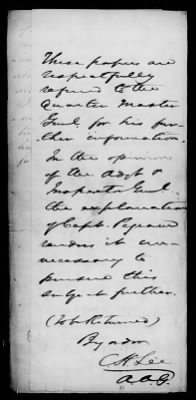 These papers are
respectfully
referred to the
Quarter Master
Genl. for his fur-
ther information.
In the opinion
of the Adjt &
Inspector Genl.
the explanation
of Capt.
renders it un-
necessary to
pursue this
subject further.
(To be Returned)
By order
C H Lee
A.A.G.